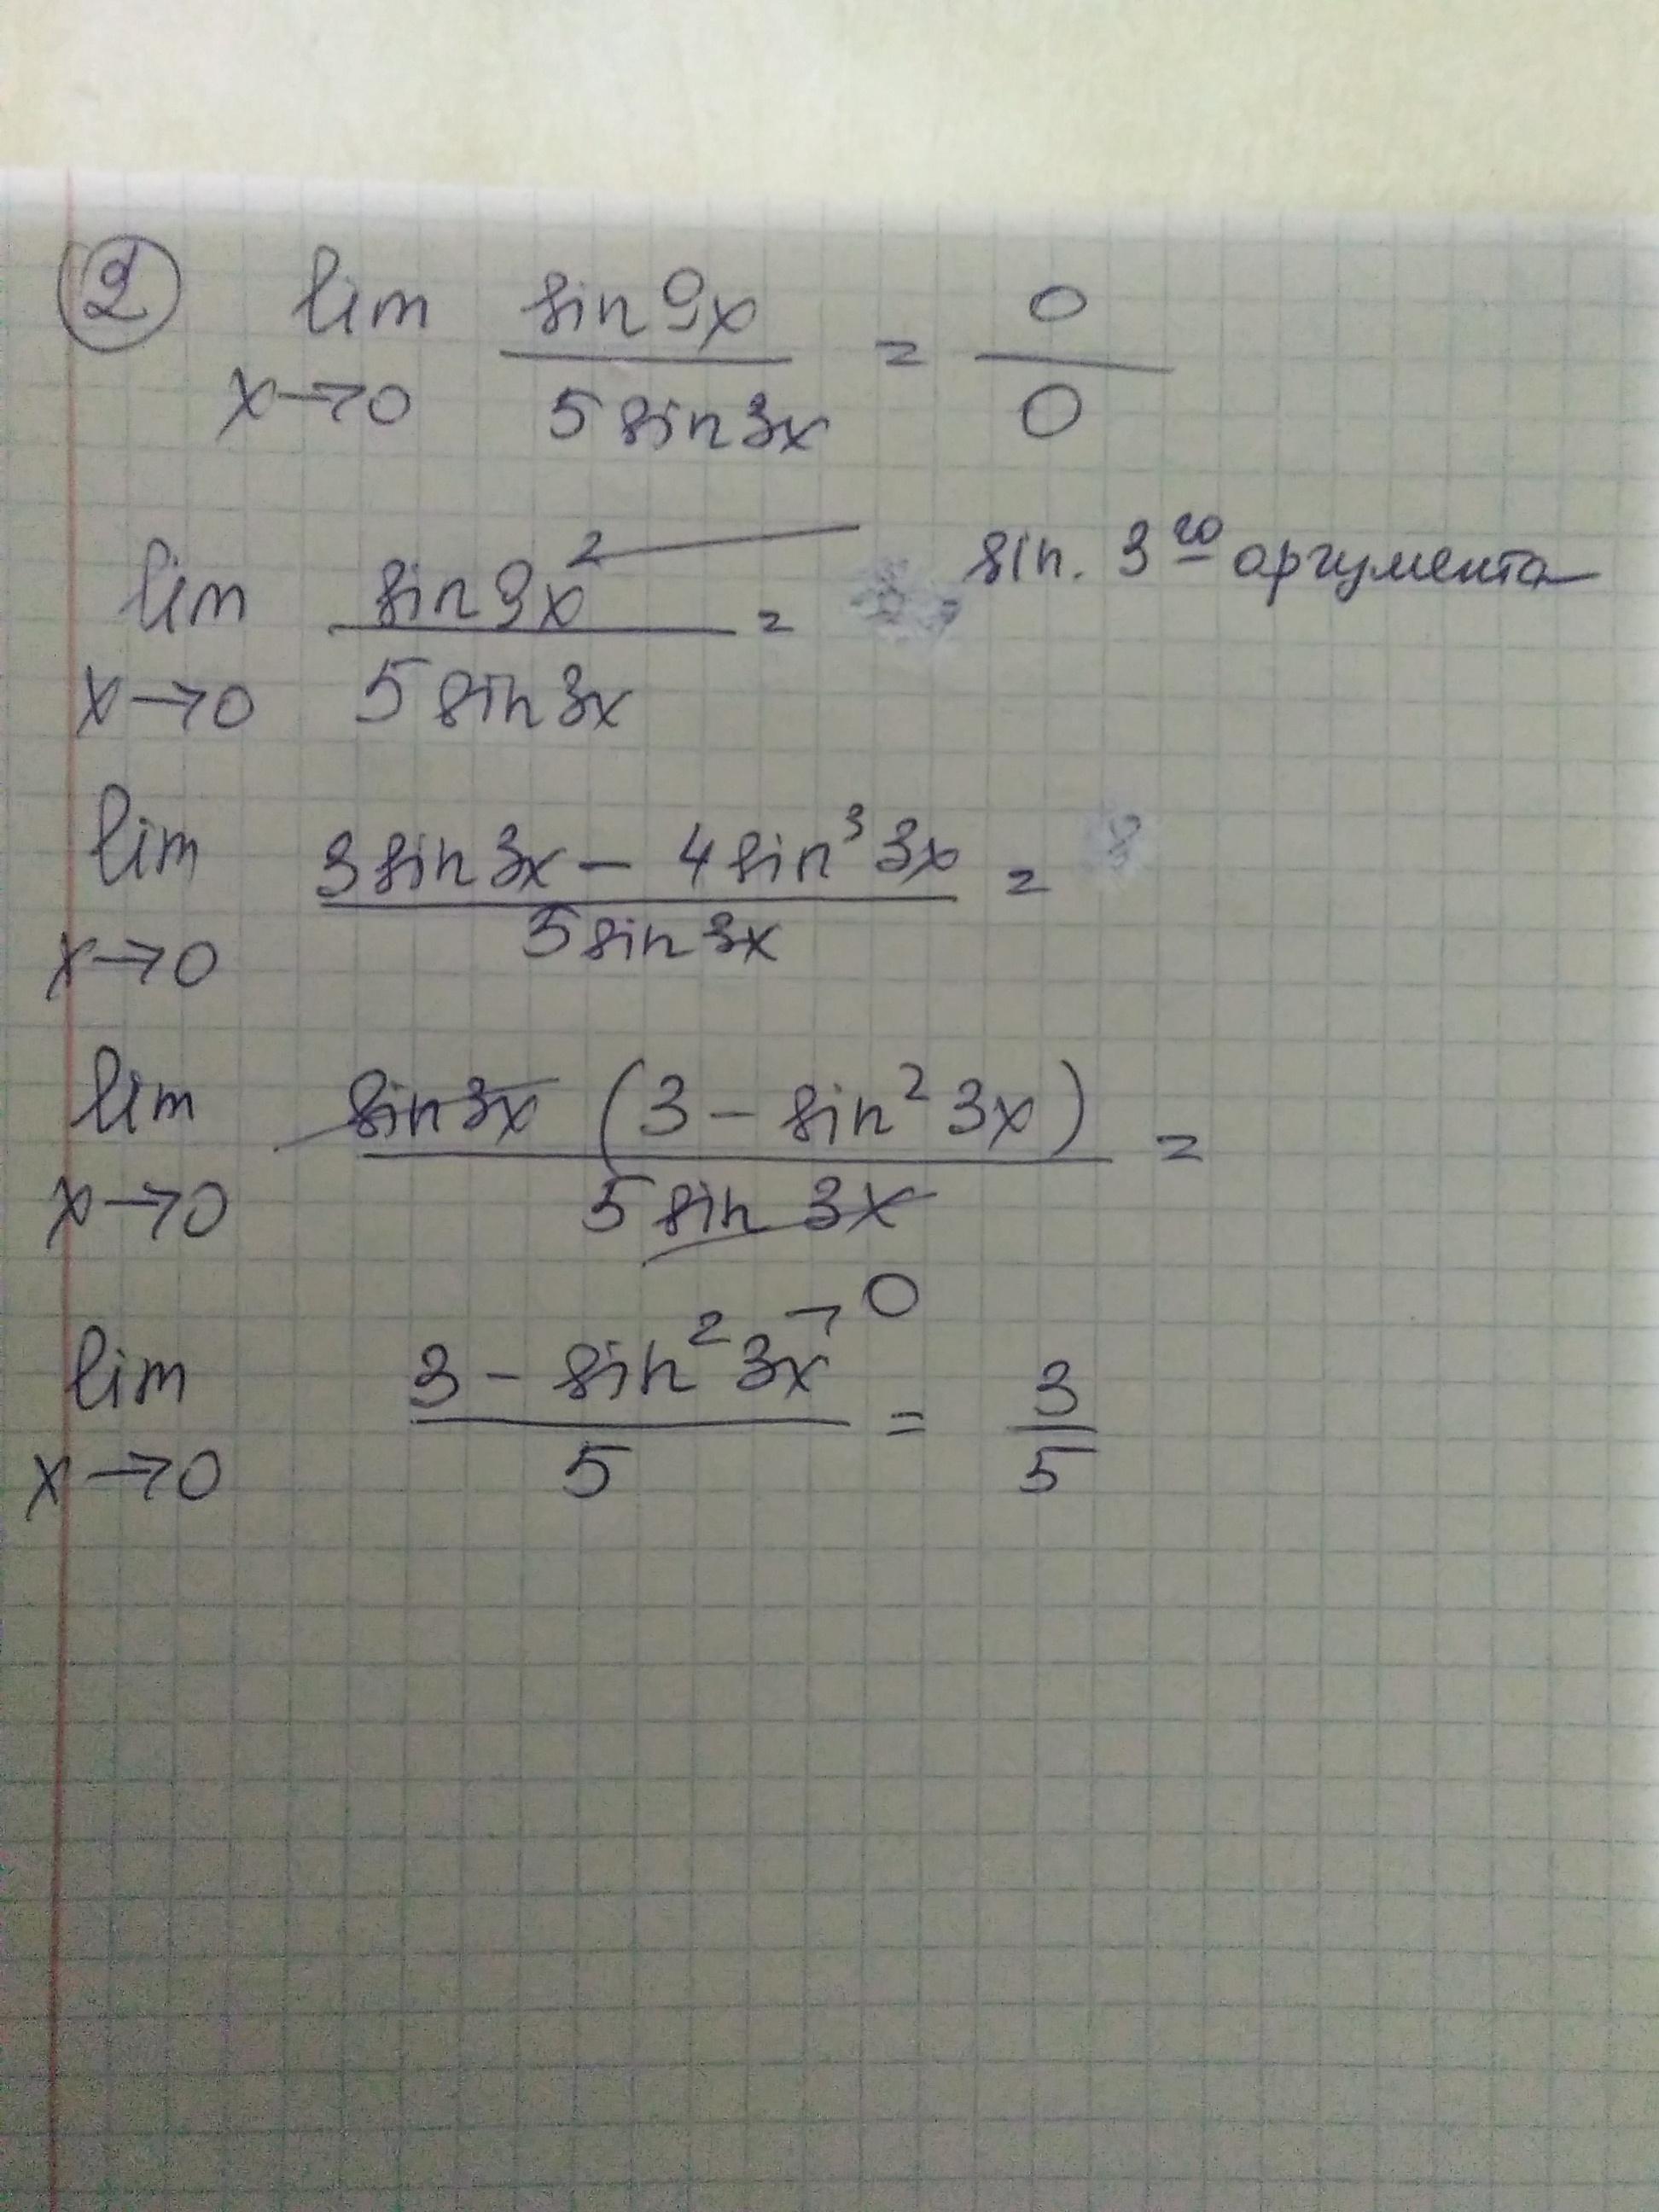 ② lim x→0 sin 9x / 5 sin 3x = 0 / 0
lim x→0 sin 9x² / 5 sin 3x = sin. 3го аргумента
lim x→0 3 sin 3x − 4 sin³ 3x / 5 sin 3x =
lim x→0 sin 3x (3 − sin² 3x) / 5 sin 3x =
lim x→0 3 − sin² 3x → 0 / 5 = 3 / 5